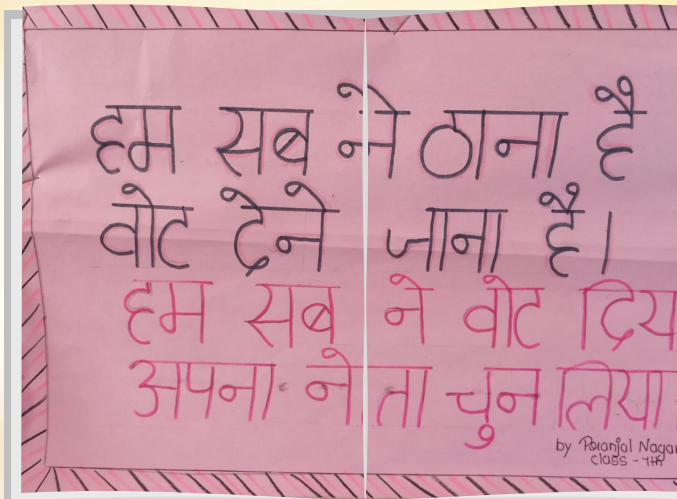 हम सब ने ठाना है
वोट देने जाना है।
हम सब ने वोट दिय
अपना नेता चुन लिया
by Pranjal Nagar
class - 7th